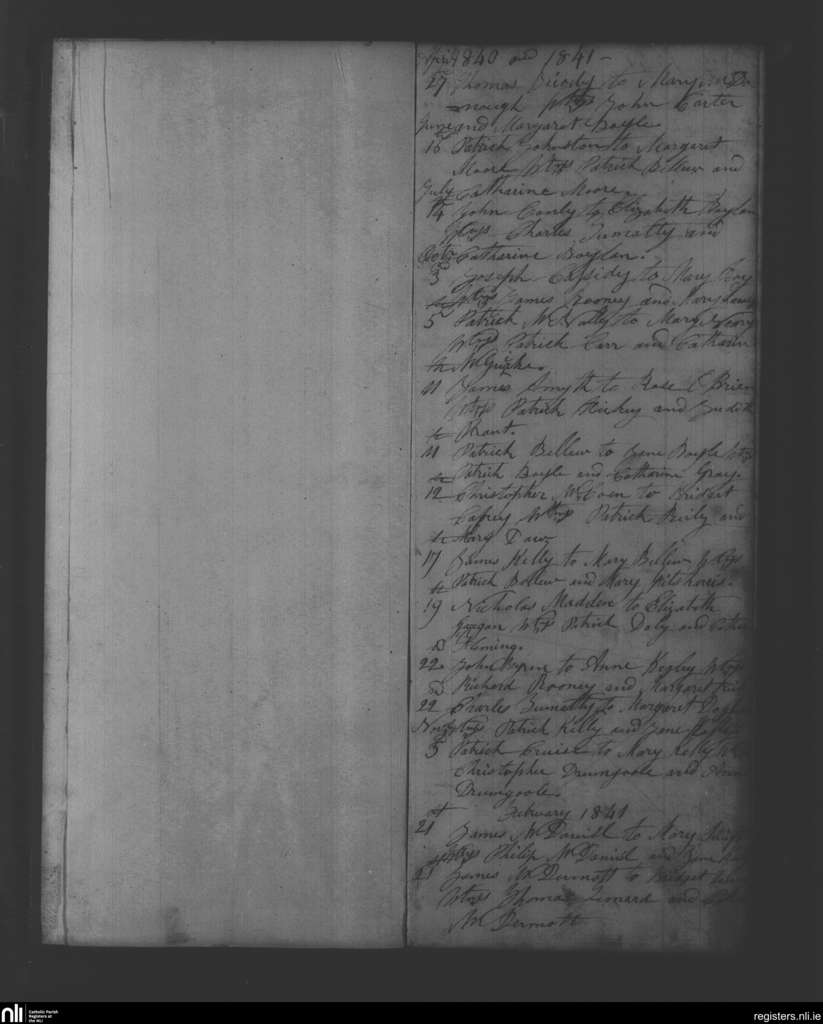 April 1840 and 1841 -
27 Thomas Briody to Mary Mc Do
nough Wtss John Carter
June and Margaret Boyle.
15 Patrick Johnston to Margaret
Moore Wtss Patrick Bellew and
July Catharine Moore.
14 John Conly to Elizabeth Boylan
Wtss Charles and
Octr Catharine Boylan.
3 Joseph Cassidy to Mary
Wtss James Rooney and Mary
5 Patrick Mc Nally to Mary
Wtss Patrick Carr and Catharin
th Mc Guirke.
11 James Smyth to Rose O Brien
Wtss Patrick Hickey and Judith
th Grant.
11 Patrick Bellew to Jane Boyle Wtss
th Patrick Boyle and Catharine Gray.
12 Christopher Mc Coen to Bridget
Cafrey Wtss Patrick Reily and
th Mary Daw
17 James Kelly to Mary Bellew Wtss
th Patrick Bellew and Mary
19 Nicholas Madden to Elizabeth
Gaegan Wtss Patrick Daly and
d Fleming.
22 John Byrne to Anne Begley Wtss
d Richard Rooney and Margaret
22 Charles to Margaret
Novr Wtss Patrick Kelly and Jane
5 Patrick Cruise to Mary Kelly
Christopher Drumgoole and Ann
Drumgoole.
st February 1841
21 James Mc Daniel to Mary
Wtss Philip Mc Daniel and
21 James Mc Dermott to Bridget
Wtss Thomas Leonard and
Mc Dermott
nli
Catholic Parish
Registers at
the NLI
registers.nli.ie